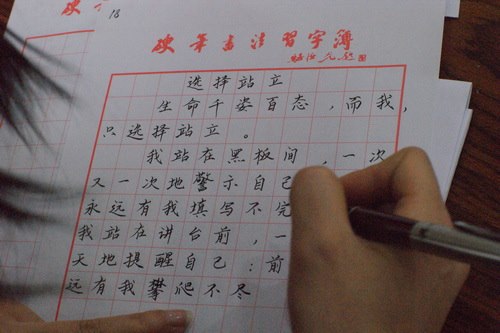 18
硬笔书法習字薄
选择站立
生命千姿百态,而我,
只选择站立。
我站在黑板间,一次
又一次地警示自己
永远有我填写不完
我站在讲台前,一
天地提醒自己:前
远有我攀爬不尽